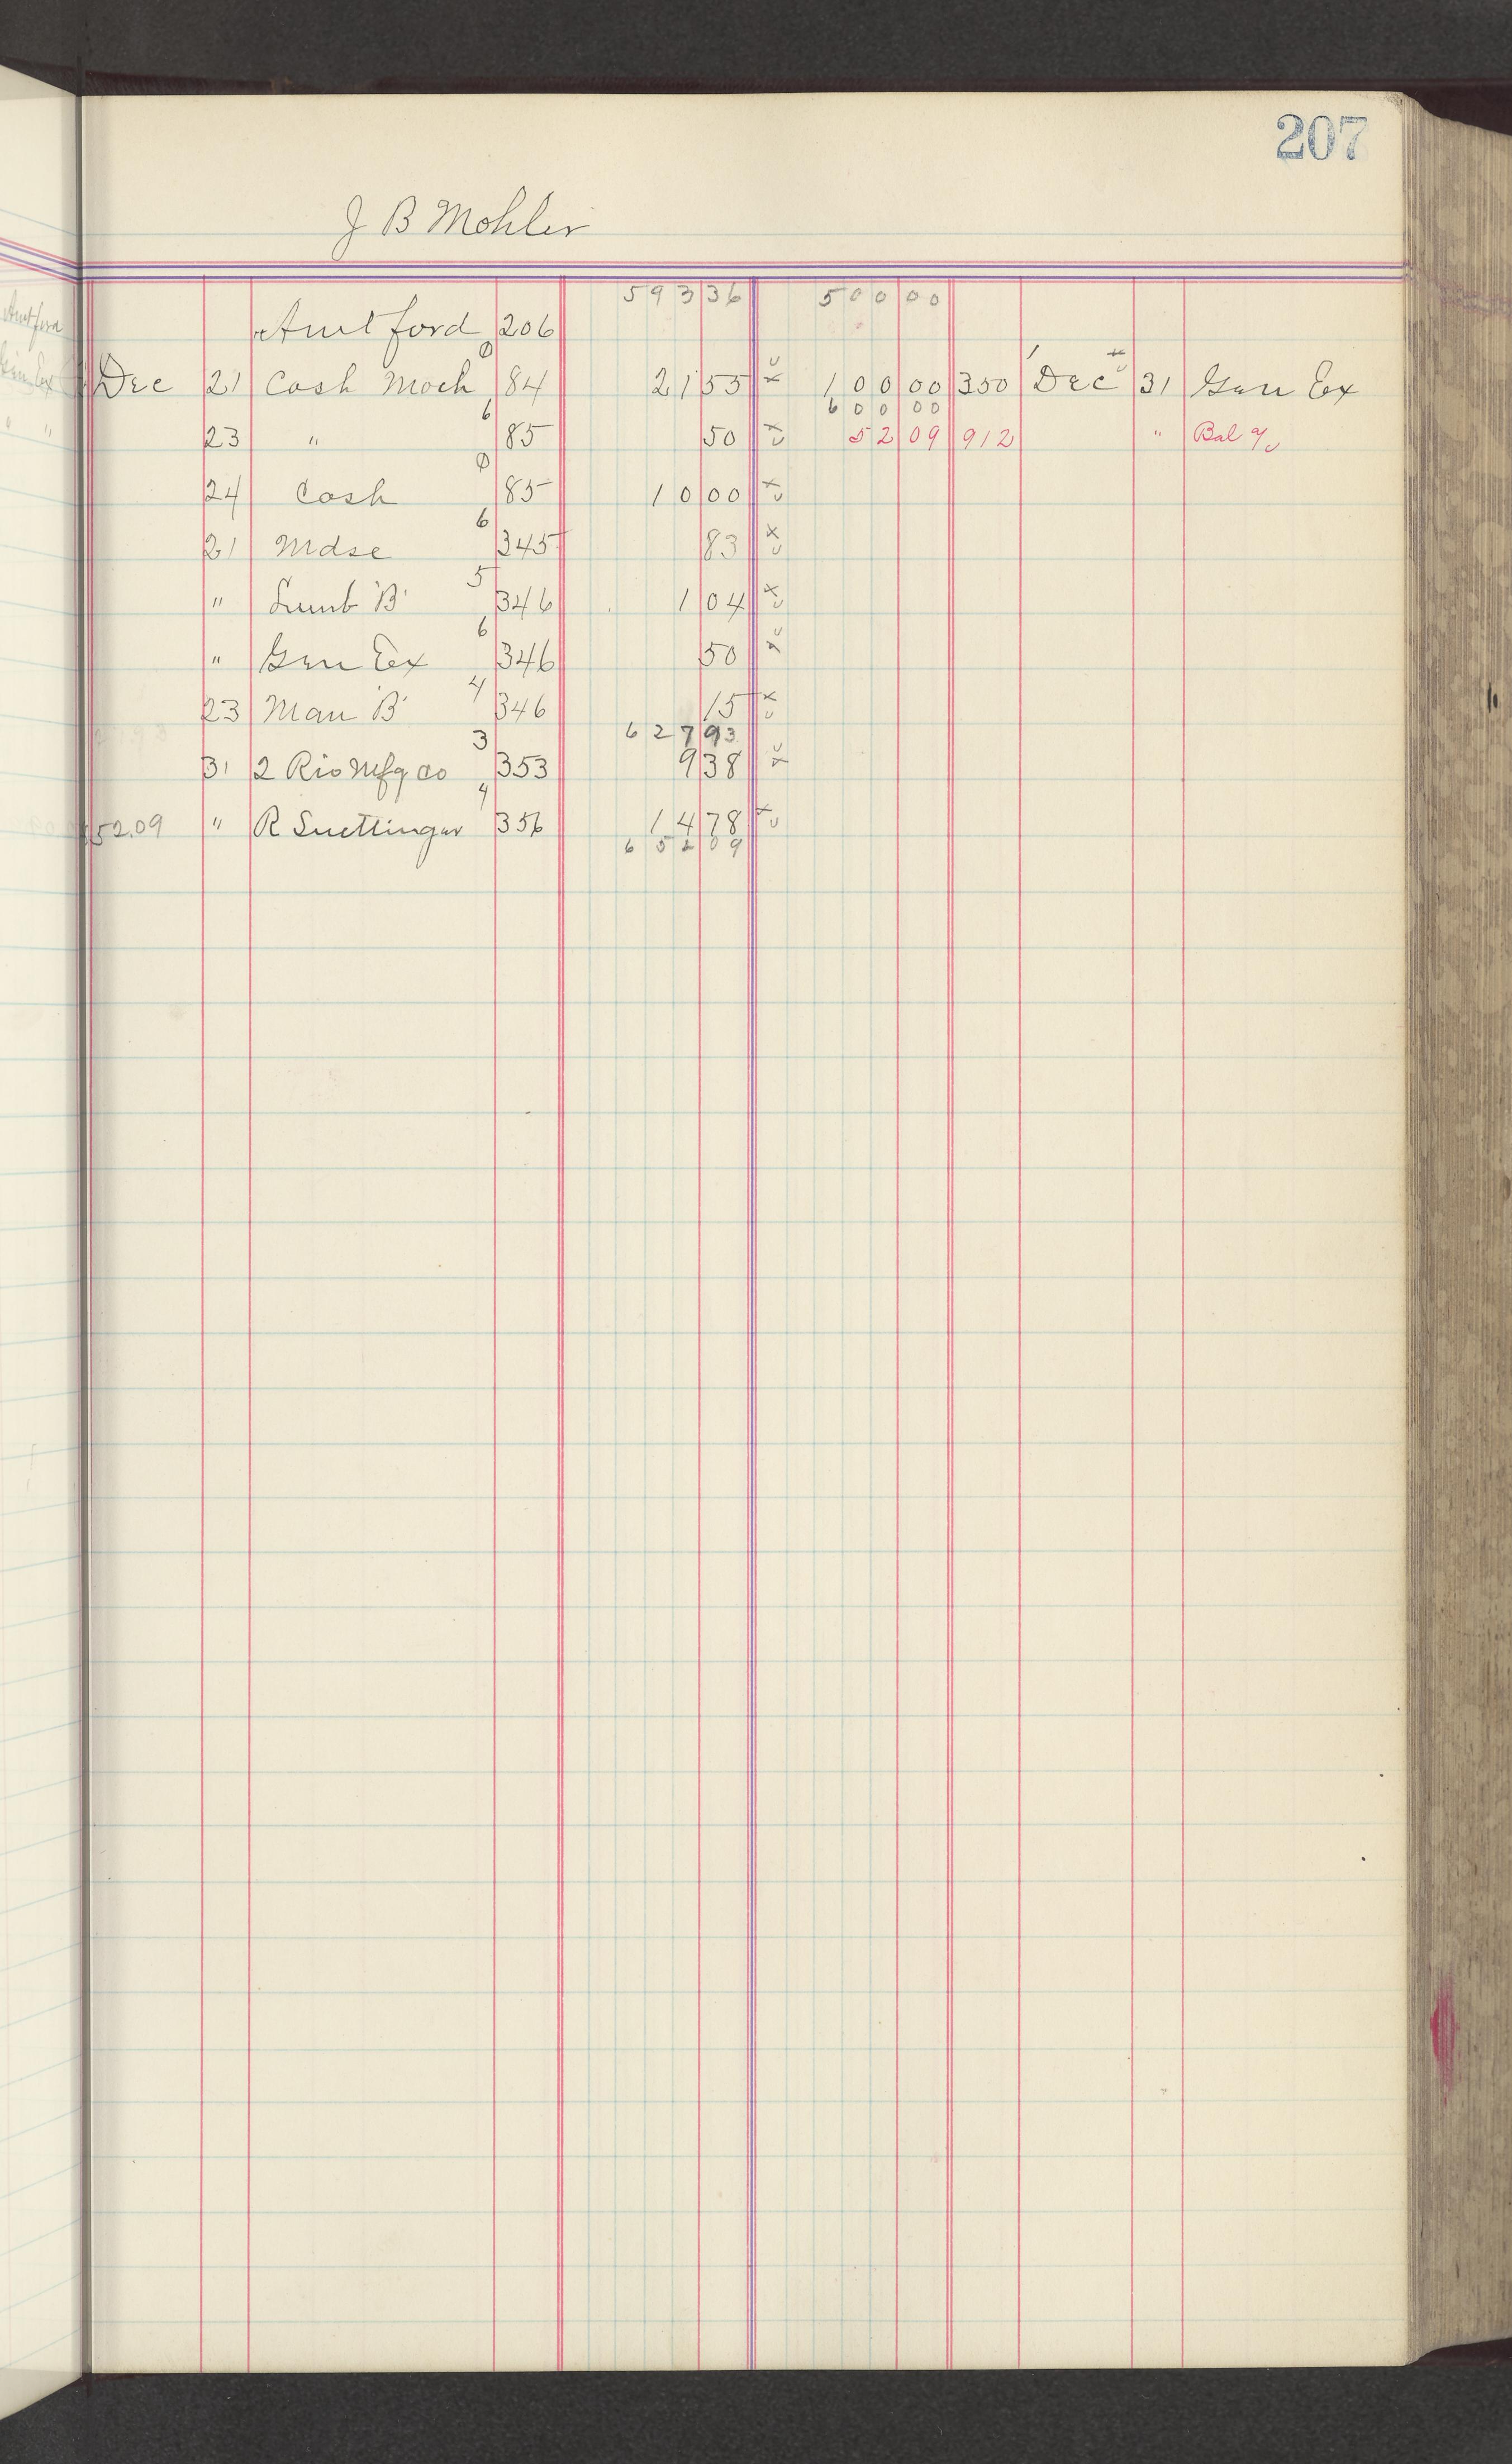 207
J B Mohler
593 36 500 00
Amt ford 206
Dec 21 Cash Moch 0 84 21 55 100 00 350 Dec 31 Gen Ex
600 00
23 " 6 85 50 52 09 912 " Bal a/c
24 Cash 0 85 10 00
21 Mdse 6 345 83
" Lumb 'B' 5 346 1 04
" Gen Ex 6 346 50
23 Man 'B' 4 346 15
627 93
31 2 Rio Mfg Co 3 353 9 38
52.09 " R Suettinger 4 356 14 78
652 09